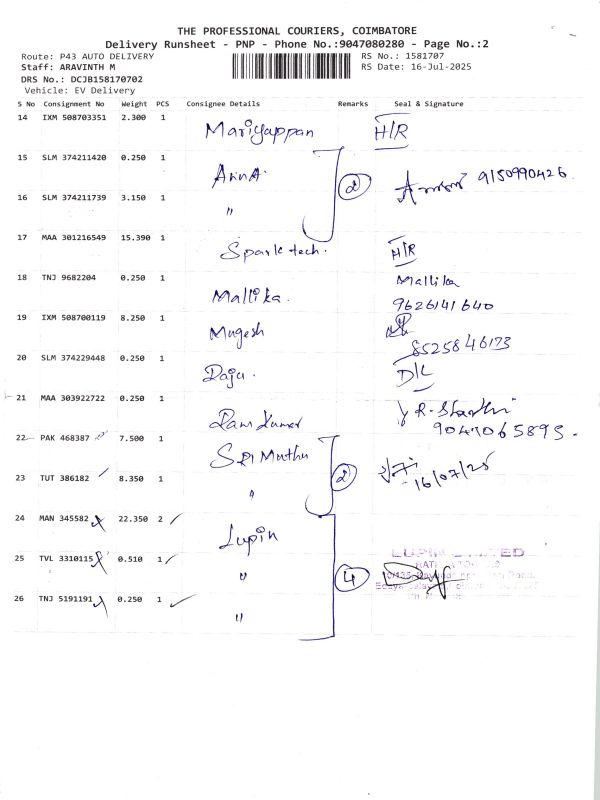 THE PROFESSIONAL COURIERS, COIMBATORE
Delivery Runsheet - PNP - Phone No.:9047080280 - Page No.:2
Route: P43 AUTO DELIVERY RS No.: 1581707
Staff: ARAVINTH M RS Date: 16-Jul-2025
DRS No.: DCJB158170702
Vehicle: EV Delivery
S No Consignment No Weight PCS Consignee Details Remarks Seal & Signature
14 IXM 508703351 2.300 1 Mariyappan H/R
15 SLM 374211420 0.250 1 Anna. 2 9150990426
16 SLM 374211739 3.150 1 "
17 MAA 301216549 15.390 1 Spark tech. H/R
18 TNJ 9682204 0.250 1 Mallika. Mallika
9626141640
19 IXM 508700119 8.250 1 Mugesh
8525846173
20 SLM 374229448 0.250 1 Raju. D/L
21 MAA 303922722 0.250 1 Ram Kumar
9047065893.
22 PAK 468387 7.500 1 Sri Muthu 2
23 TUT 386182 8.350 1 " 16/07/25
24 MAN 345582 22.350 2 Lupin
25 TVL 3310115 0.510 1 " 4 LUPIN LIMITED
26 TNJ 5191191 0.250 1 "